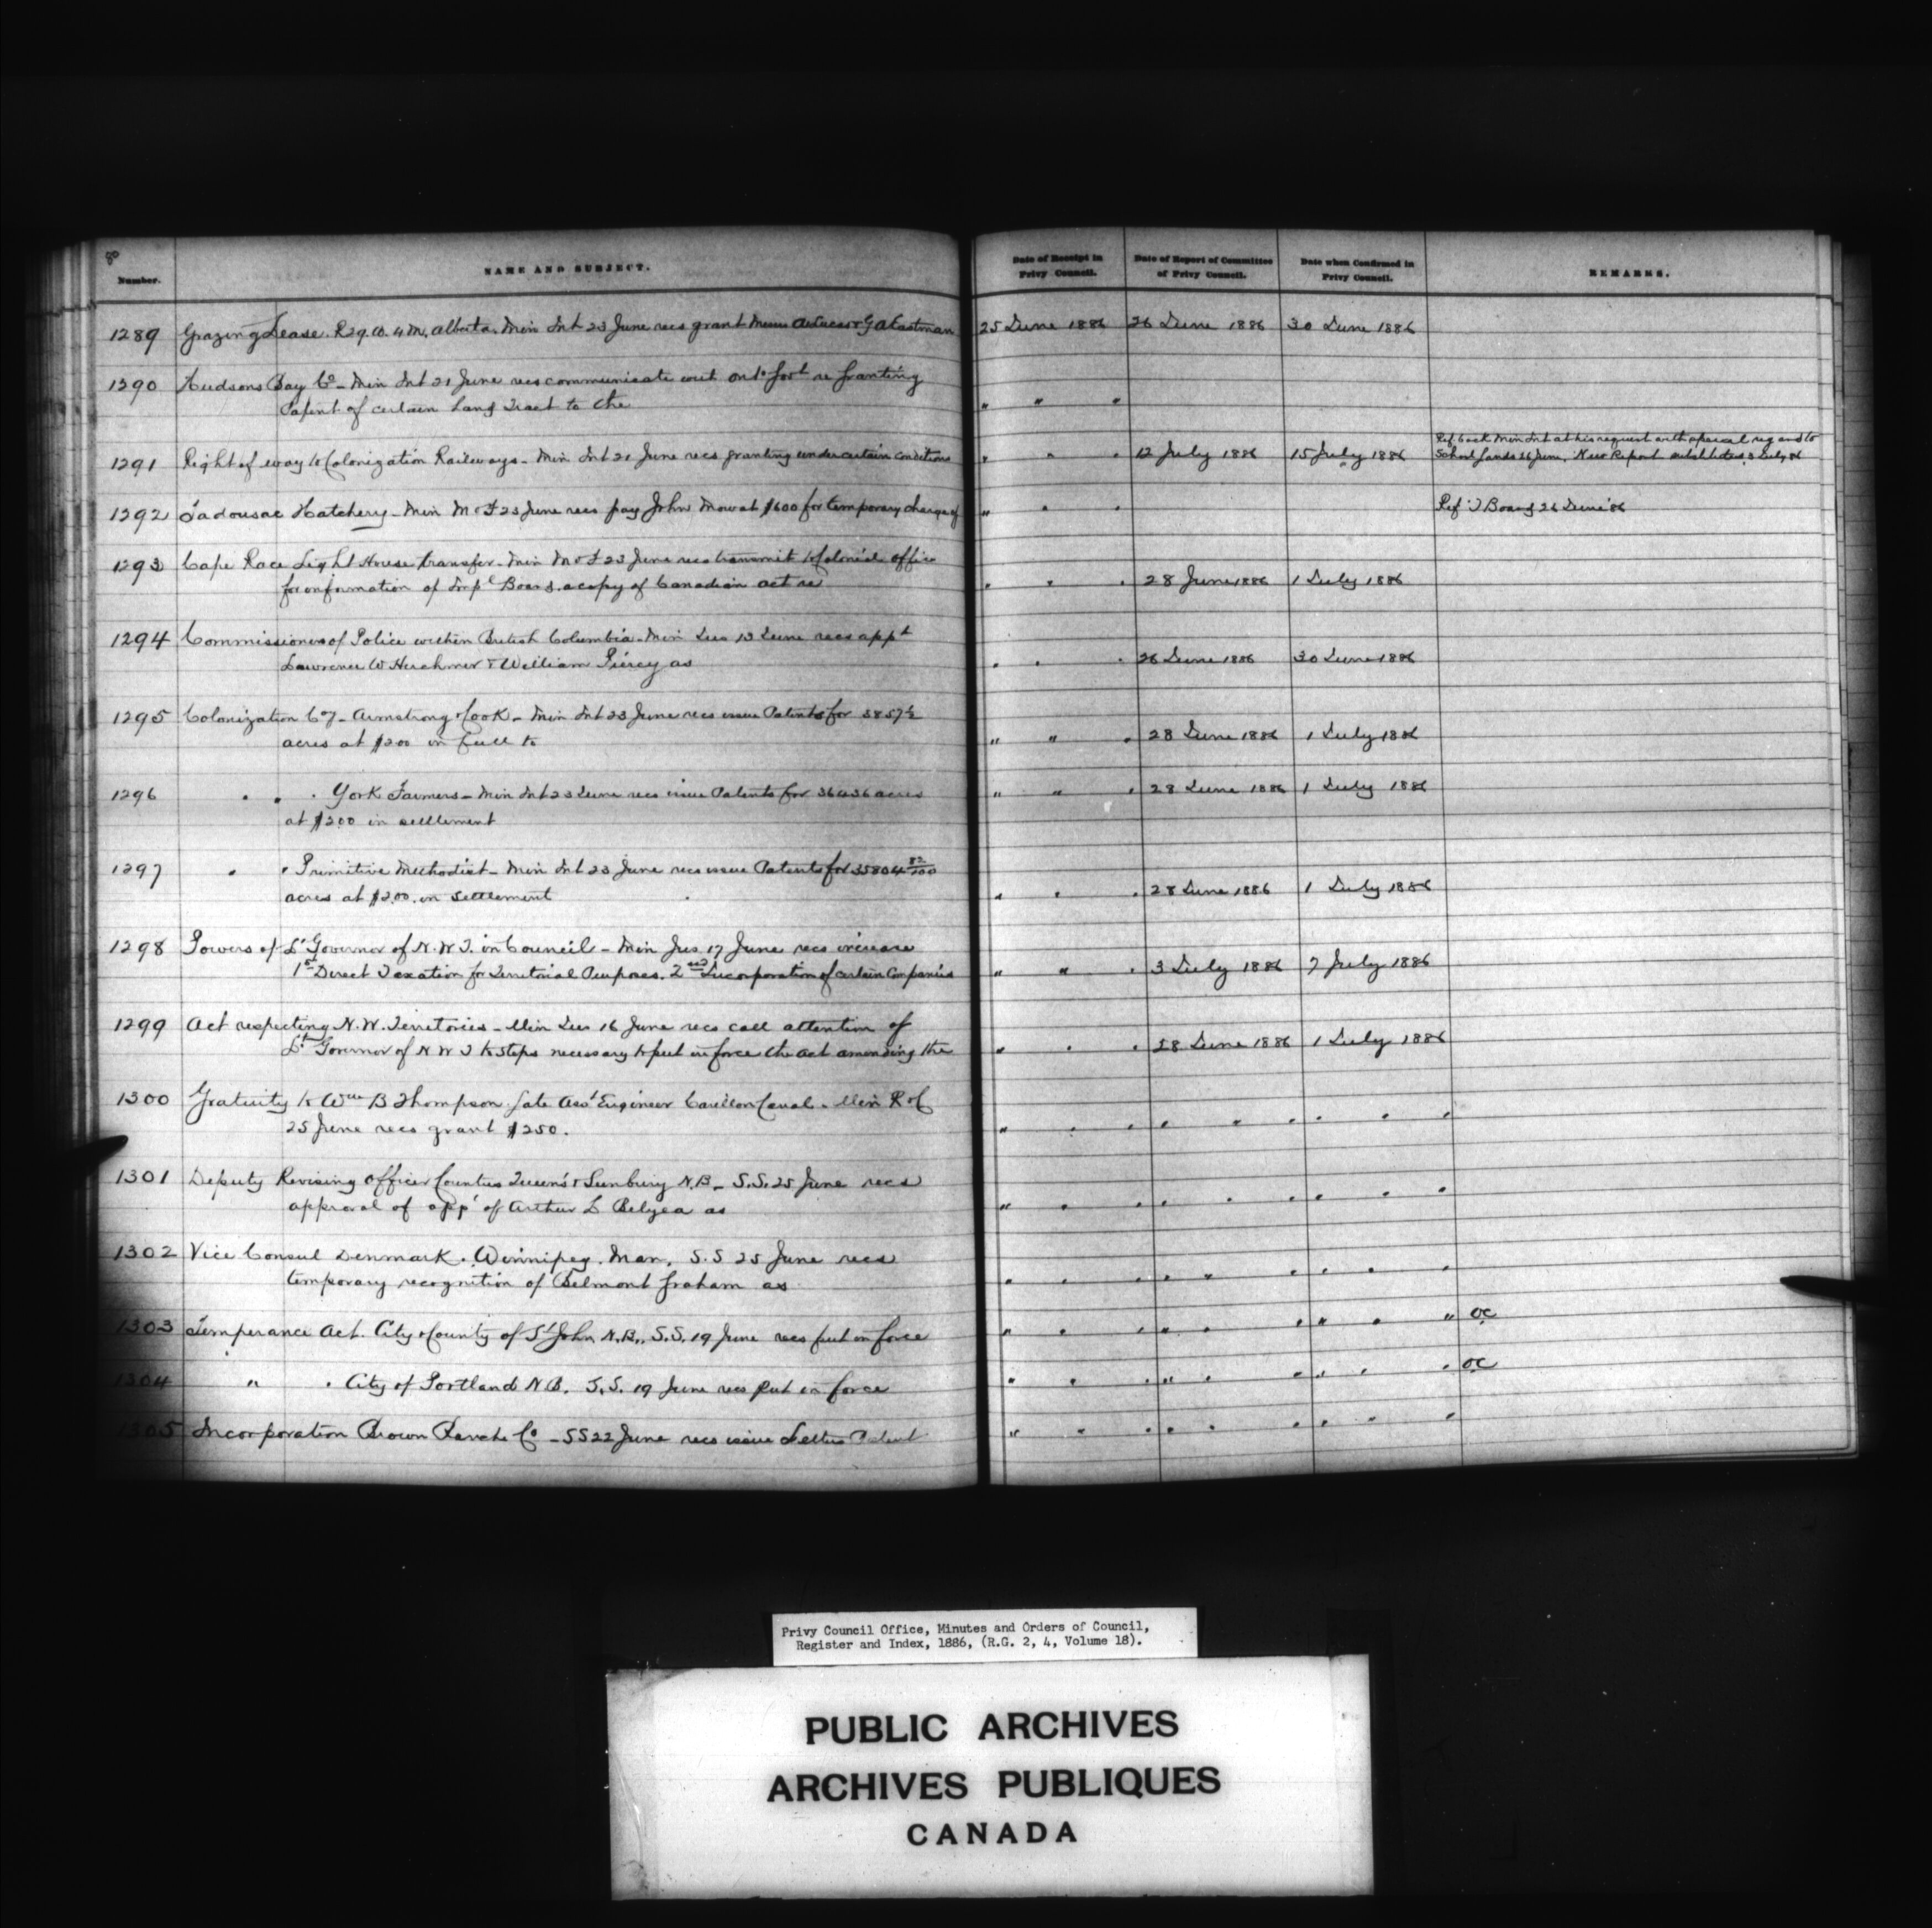 80
Number. NAME AND SUBJECT. Date of Receipt in Privy Council. Date of Report of Committee of Privy Council. Date when Confirmed in Privy Council. REMARKS.
1289 Grazing Lease. R29. W. 4 M. Alberta. Min Int 23 June recs grant Messrs & G A Eastman 25 June 1886 26 June 1886 30 June 1886
1290 Hudsons Bay Co - Min Int 21 June recs communicate with Onto Govt re granting
Patent of certain Land Tract to the " " "
1291 Right of way to Colonization Railways - Min Int 21 June recs granting under certain conditions " " " 12 July 1886 15 July 1886 Ref back Min Int at his request with special reg and to
School Lands 26 June. New Report substituted 3 July 86
1292 Tadousac Hatchery - Min M & F 23 June recs pay John Mowat $600 for temporary charge of " " " Ref T Board 26 June '86
1293 Cape Race Light House transfer - Min M & F 23 June recs transmit to Colonial Office
for information of Impl Board a copy of Canadian act re " " " 28 June 1886 1 July 1886
1294 Commissioners of Police within British Columbia - Min Jus 13 June recs appt
Lawrence W Herchmer & William Piercy as " " " 26 June 1886 30 June 1886
1295 Colonization Coy - Armstrong & Cook - Min Int 23 June recs issue Patents for 3857½
acres at $2.00 in full to " " " 28 June 1886 1 July 1886
1296 " " " York Farmers - Min Int 23 June recs issue Patents for 36436 acres " " " 28 June 1886 1 July 1886
at $2.00 in settlement
1297 " " Primitive Methodist - Min Int 23 June recs issue Patents for 35804 82/100
acres at $2.00. in settlement " " " 28 June 1886 1 July 1886
1298 Powers of Lt Governor of N. W. T. in Council - Min Jus 17 June recs increase
1st Direct Taxation for Territorial Purposes. 2nd Incorporation of certain Companies " " " 3 July 1886 7 July 1886
1299 Act respecting N. W. Territories - Min Jus 16 June recs call attention of
Lt Governor of N W T to steps necessary to put in force the act amending the " " " 28 June 1886 1 July 1886
1300 Gratuity to Wm B Thompson late Asst Engineer Carillon Canal - Min R & C
25 June recs grant $250. " " " " " " " " "
1301 Deputy Revising Officer Counties Queens & Sunbury N.B - S.S. 25 June recs
approval of appt of Arthur L Belyea as " " " " " " " " "
1302 Vice Consul Denmark. Winnipeg. Man. S.S 25 June recs
temporary recognition of Belmont Graham as " " " " " " " " "
1303 Temperance Act. City & County of St John N.B., S.S. 19 June recs put in force " " " " " " " " OC
1304 " " City of Portland N B. S.S. 19 June recs put in force " " " " " " " " OC
1305 Incorporation Brown Ranche Co - SS 22 June recs issue Letters Patent " " " " " " " "
Privy Council Office, Minutes and Orders of Council,
Register and Index, 1886, (R.G. 2, 4, Volume 18).
PUBLIC ARCHIVES
ARCHIVES PUBLIQUES
CANADA